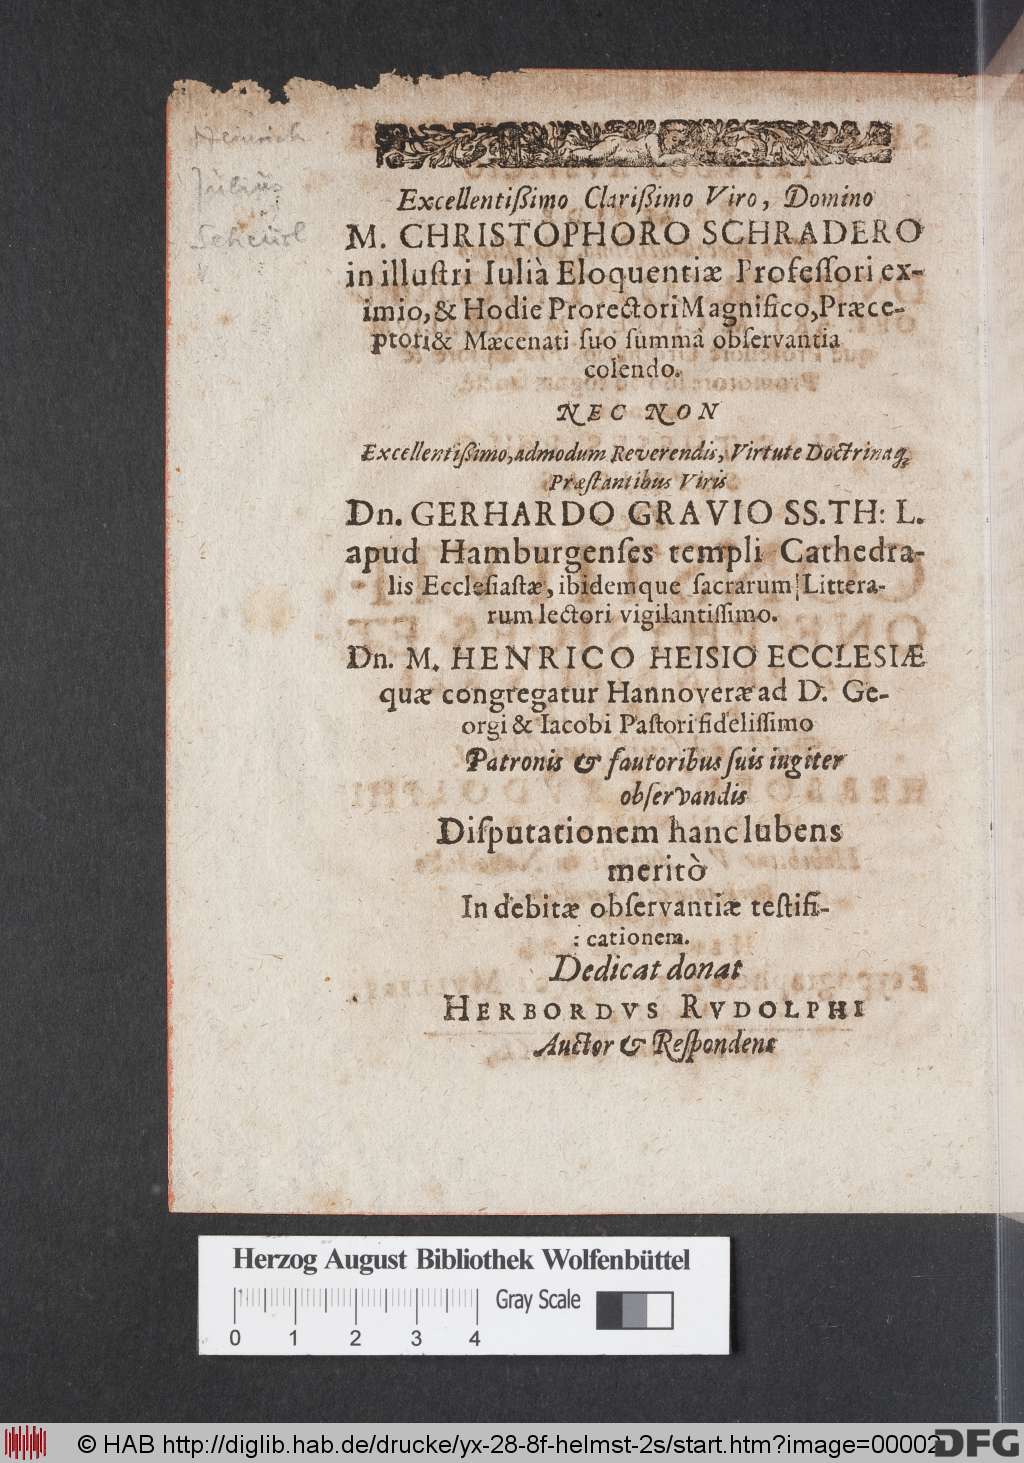 Heinrich
Julius
Scheurl
Excellentißimo Clarißimo Viro, Domino
M. CHRISTOPHORO SCHRADERO
in illuſtri Iuliâ Eloquentiæ Profeſſori ex-
imio, & Hodie Prorectori Magnifico, Præce-
ptori & Mæcenati ſuo ſummâ obſervantia
colendo.
NEC NON
Excellentißimo, admodum Reverendis, Virtute Doctrinaq́;
Præſtantibus Viris
Dn. GERHARDO GRAVIO SS. TH: L.
apud Hamburgenſes templi Cathedra-
lis Eccleſiaſtæ, ibidemque ſacrarum Littera-
rum lectori vigilantiſſimo.
Dn. M. HENRICO HEISIO ECCLESIÆ
quæ congregatur Hannoveræ ad D. Ge-
orgi & Iacobi Paſtori fideliſſimo
Patronis & fautoribus ſuis iugiter
obſervandis
Diſputationem hanc lubens
meritò
In debitæ obſervantiæ teſtifi-
cationem.
Dedicat donat
HERBORDVS RVDOLPHI
Auctor & Reſpondens
Herzog August Bibliothek Wolfenbüttel
Gray Scale
0 1 2 3 4
© HAB http://diglib.hab.de/drucke/yx-28-8f-helmst-2s/start.htm?image=00002
DFG